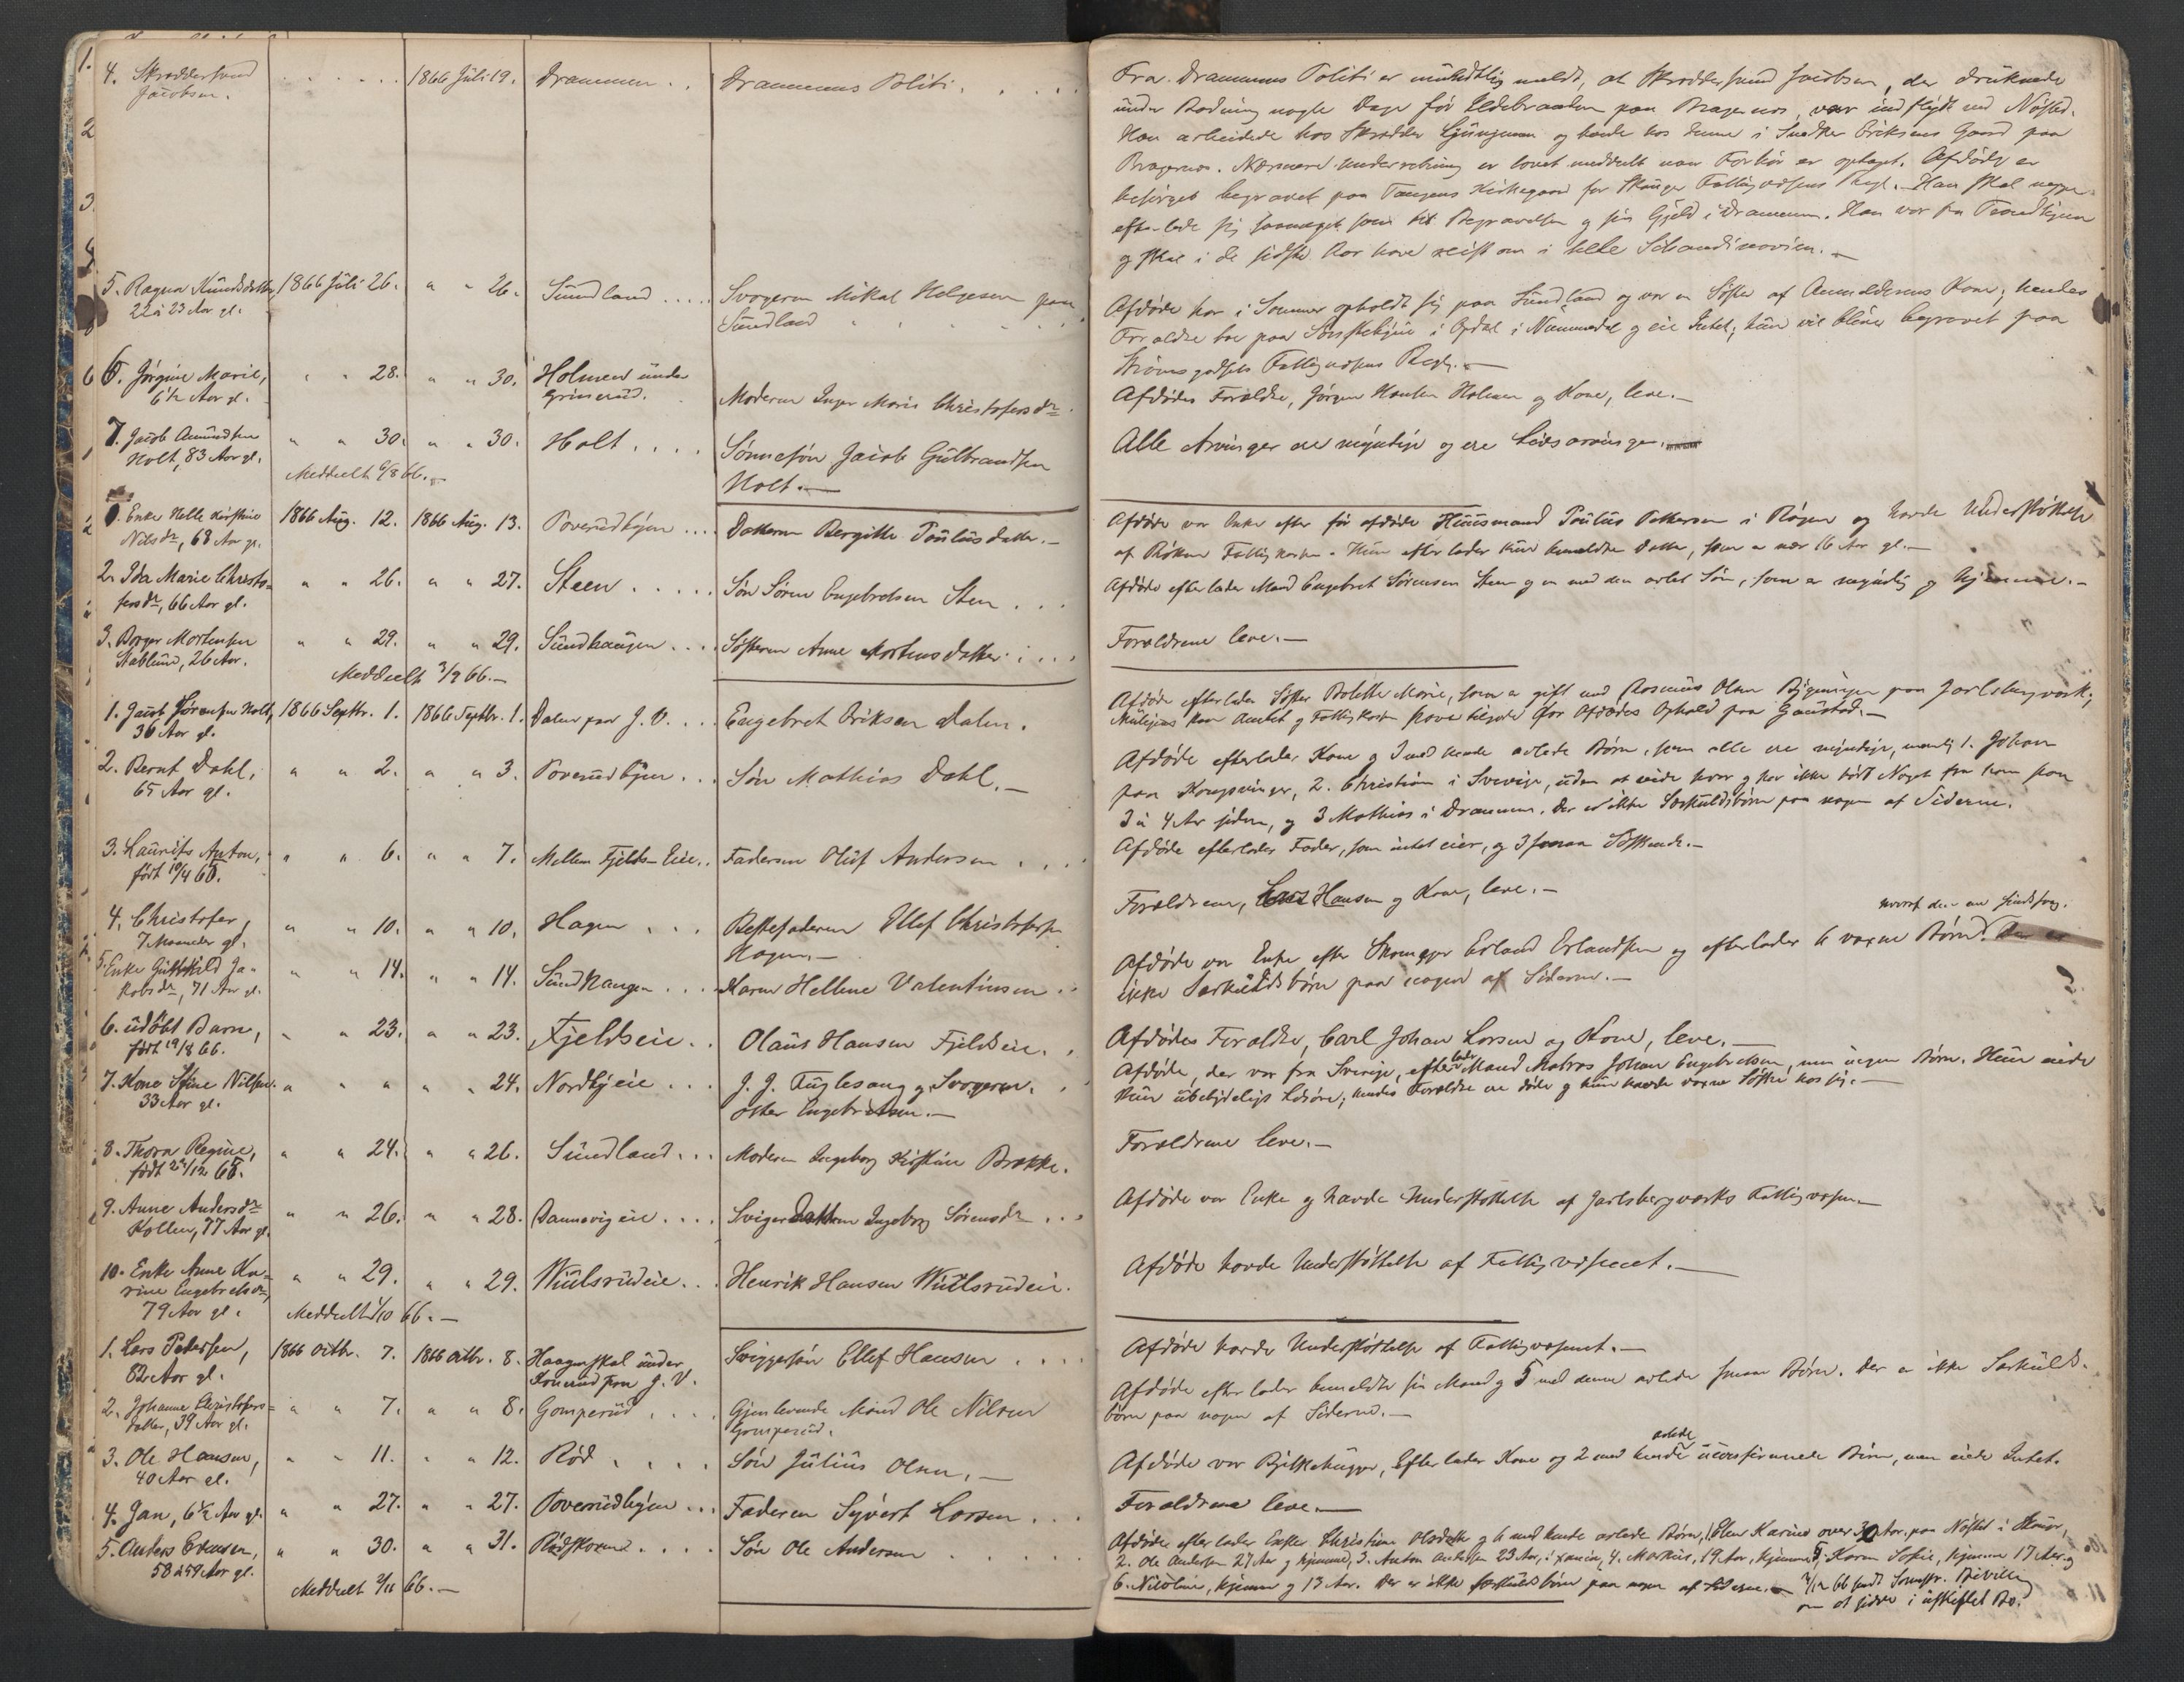 4. Skræddersvend Jacobsen. 1866 Juli 19. Drammen. Drammens Politi.
Fra Drammens Politi er mundtlig meldt, at Skræddersvend Jacobsen, der druknede
under Badning nogle Dage før Ildebranden paa Bragernes, var indflydt ved Nøsted.
Han arbeidede hos Skrædder Ljungman og boede hos denne i Snedker Eriksens Gaard paa
Bragernes. Nærmere Underretning er lovet meddelt naar Forhør er optaget. Afdøde er
besørget begravet paa Tangens Kirkegaard for Skouger Fattigvæsens Regn. Han skal neppe
efterlade sig saameget som til Begravelsen og sin Gjæld i Drammen. Han var fra Trondhjem
og skal i de sidste Aar have reist om i hele Skandinavien.
5. Ragna Knudsdatter, 22 à 23 Aar gl. 1866 Juli 26. " " 26. Sundland. Svogeren Mikal Helgesen paa Sundland
Afdøde har i Sommer opholdt sig paa Sundland og var en Søster af Anmelderens Kone; hendes
Forældre bor paa i Opdal i Nummedal og eie Intet; hun vil blive begravet paa
Strømsgodsets Fattigvæsens Regn.
6. Jørgine Marie, 6½ Aar gl. " " 28. " " 30. Holmen under Grinerud. Moderen Inger Marie Christofersdr
Afdødes Forældre, Jørgen Hansen Holmen og Kone, leve.
7. Jacob Amundsen Holt, 83 Aar gl. " " 30. " " 30. Holt. Sønnesøn Jacob Gulbrandsen Holt.
Alle Arvinger ere myndige og ere Livsarvinger.
Meddeelt 6/8 66.
1. Enke Helle Kirstine Nilsdr, 68 Aar gl. 1866 Aug. 12. 1866 Aug. 13. Poverudbyen. Datteren Bergitte Paulusdatter.
Afdøde var Enke efter før afdøde Huusmand Paulus Pettersen i Røgen og havde Understøttelse
af Røken Fattigkasse. Hun efterlader kun bemeldte Datter, som er nær 16 Aar gl.
2. Ida Marie Christofersdr, 66 Aar gl. " " 26. " " 27. Steen. Søn Søren Engebretsen Steen
Afdøde efterlader Mand Engebret Sørensen Steen og en med den avlet Søn, som er myndig og hjemme.
3. Borger Mortensen Stablund, 26 Aar. " " 29. " " 29. Sundhaugen. Søsteren Anne Mortensdatter
Forældrene leve.
Meddeelt 3/9 66.
1. Jacob Sørensen Holt, 36 Aar gl. 1866 Septbr. 1. 1866 Septbr. 1. Dalen paa J. V. Engebret Eriksen Dalen.
Afdøde efterlader Søster Bolette Marie, som er gift med Rasmus Olsen Bygningen paa Jarlsbergværk;
Muligens kan Amtet og Fattigkassen have tilgode for Afdødes Ophold paa Gaustad.
2. Bernt Dahl, 65 Aar gl. " " 2. " " 3. Poverudbyen. Søn Mathias Dahl.
Afdøde efterlader Kone og 3 med hende avlede Børn, som alle ere myndige, nemlig 1. Johan
paa Kongsvinger, 2. Christian i Sverige, uden at vide hvor og har ikke hørt Noget fra ham paa
3 à 4 Aar siden, og 3 Mathias i Drammen. Der er ikke Særkuldsbørn paa nogen af Siderne.
3. Laurits Anton, født 10/4 60. " " 6. " " 7. Mellem Fjelds Eie. Faderen Oluf Andersen
Afdøde efterlader Fader, som intet eier, og 3 smaa Søskende.
4. Christofer, 7 Maaneder gl. " " 10. " " 10. Hagen. Bestefaderen Ellef Christofersen Hagen.
Forældrene, Lars Hansen og Kone, leve.
5. Enke Gunhild Jakobsdr, 71 Aar gl. " " 14. " " 14. Sundhaugen. Karen Helline Valentinsen
Afdøde var Enke efter Erland Erlandsen og efterlader 6 voxne Børn, hvoraf den ene sindssvag. Der er
ikke Særkuldsbørn paa nogen af Siderne.
6. udøbt Barn, født 19/8 66. " " 23. " " 23. Fjeldseie. Olaus Hansen Fjeldseie.
Afdødes Forældre, Carl Johan Larsen og Kone, leve.
7. Kone Stine Nilsen. 33 Aar gl. " " " " " 24. Nordbyeie. J. J. Fuglesang og Svogeren Peter Engebretsen.
Afdøde, der var fra Sverige, efterlader Mand Matros Johan Engebretsen, men ingen Børn. Hun eiede
kun ubetydeligt Løsøre; hendes Forældre ere døde og hun havde voxne Søstre hos sig.
8. Thora Regine, født 22/12 65. " " 24. " " 26. Sundland. Moderen Ingeborg Kirstine Brække.
Forældrene leve.
9. Anne Andersdr Kollen, 77 Aar gl. " " 26. " " 28. Dannevigeie. Svigerdatteren Ingeborg Sørensdr
Afdøde var Enke og havde Understøttelse af Jarlsbergværks Fattigvæsen.
10. Enke Anne Karine Engebretsdr, 79 Aar gl. " " 29. " " 29. Wiulsrudeie. Henrik Hansen Wiulsrudeie.
Afdøde havde Understøttelse af Fattigvæsenet.
Meddeelt 1/10 66.
1. Lars Pedersen, 82 Aar gl. 1866 Octbr. 7. 1866 Octbr. 8. Haagenskal under Konerud paa J. V. Svigersøn Ellef Hansen
Afdøde havde Understøttelse af Fattigvæsenet.
2. Johanne Christofersdatter, 39 Aar gl. " " 7. " " 8. Gomperud. Gjenlevende Mand Ole Nilsen Gomperud.
Afdøde efterlader bemeldte sin Mand og 5 med denne avlede smaa Børn. Der er ikke Særkulds-
børn paa nogen af Siderne.
3. Ole Hansen, 40 Aar gl. " " 11. " " 12. Rød. Søn Julius Olsen.
Afdøde var Bjelkehugger, Efterlader Kone og 2 med hende avlede uconfirmerede Børn, men eiede Intet.
4. Jan, 6½ Aar gl. " " 27. " " 27. Poverudbyen. Faderen Syvert Larsen
Forældrene leve.
5. Anders Evensen, 58 à 59 Aar gl. " " 30. " " 31. Rødskoven. Søn Ole Andersen
Afdøde efterlader Enke Christine Olsdatter og 6 med hende avlede Børn, 1 Elen Karine over 30 Aar, paa Nøsted i
2. Ole Andersen 27 Aar og hjemme, 3. Anton Andersen 23 Aar, i Xania, 4. Markus, 19 Aar, hjemme, 5. Karen Sofie, hjemme 17 Aar og
6. Nicoline, hjemme og 13 Aar. Der er ikke Særkuldsbørn paa nogen af Siderne. 2/12 66 sendt Bevilling
om at sidde i uskiftet Bo.
Meddeelt 2/11 66.